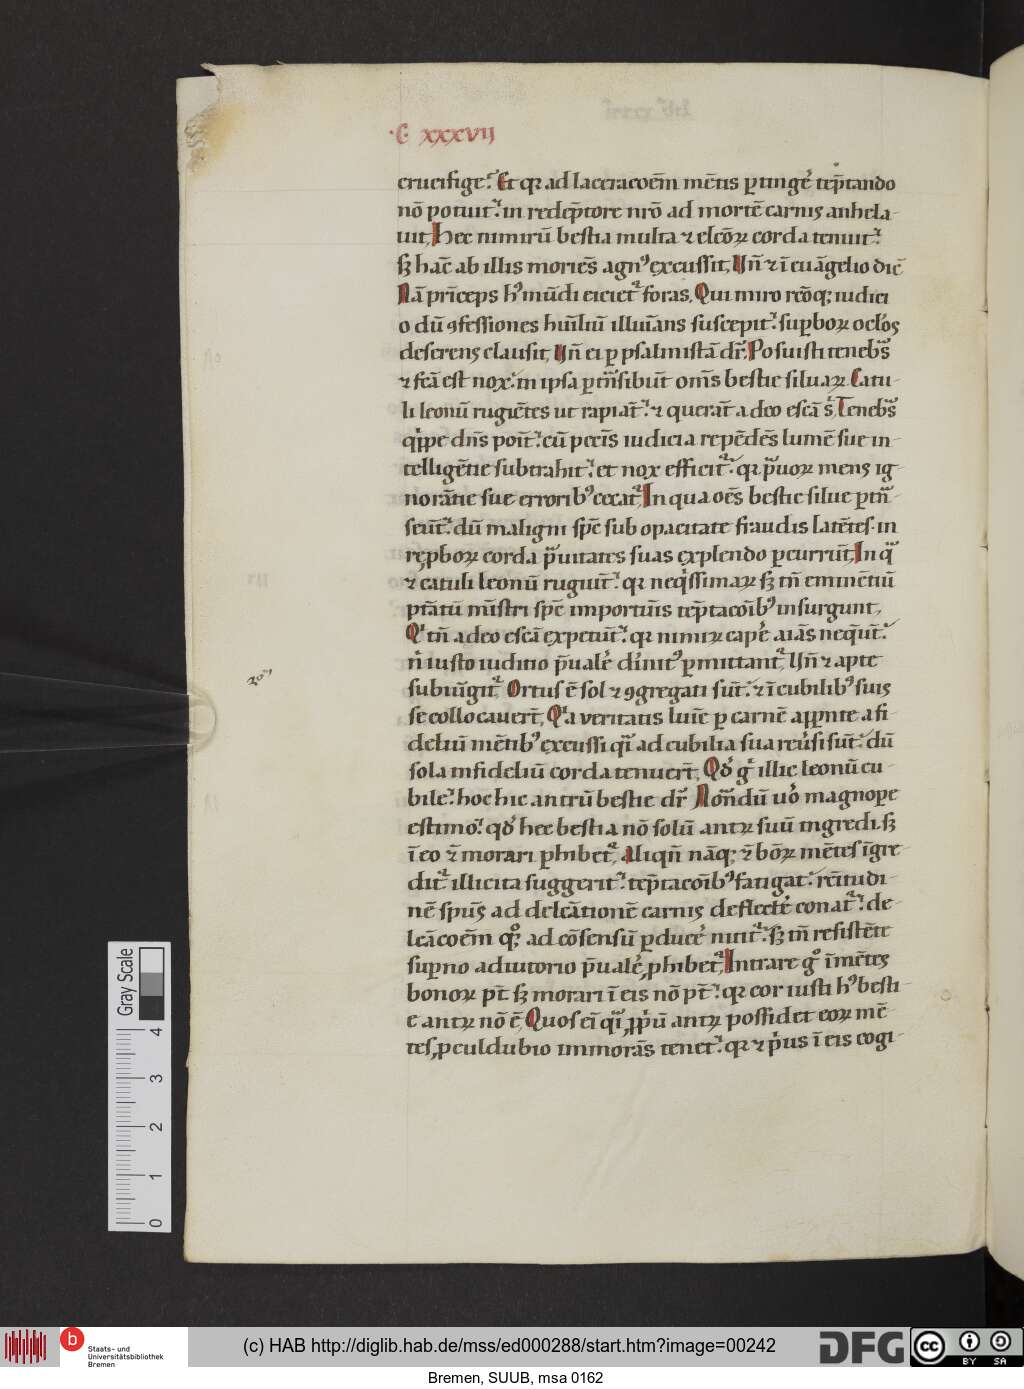 ·C· xxxvıȷ
crucifige. Et qꝛ ad laceracōem mētis ꝑtinge᷑ tēptando
nō potuit. in redēptore nrō ad mortē carnis anhela-
uit. Hec nimirū bestia multa ⁊ elcōꝝ corda tenuit.
sꝫ hāc ab illis moriēs agnꝰ excussit. Vn̄ ⁊ ī euāgelio dic̄
Nā prīceps hꝰ mūdi eicietᷣ foras. Qui miro rcōqꝫ iudici
o dū ꝯfessiones humiliū illumans suscepit. suꝑboꝝ oclos
deserens clausit. Vn̄ ei ꝑ psalmistā drᷣ. Posuisti tenebs
⁊ fcā est nox. in ipsa ꝑtn̄sibūt om̄s bestie siluaꝝ. Catu-
li leonū rugiētes ut rapiāt. ⁊ querāt a deo escā s. Tenebs
qippe dn̄s poīt. cū pccīs iudicia repēdēs lumē sue in-
telligētie subtrahit. et nox efficitᷣ. qꝛ puoꝝ mens ig-
norātie sue erroribꝰ cecatᷣ. In qua oēs bestie silue ꝑtn̄-
seūt. dū maligni spc̄ sub opacitate fraudis latētes in
reꝓboꝝ corda prauitates suas explendo ꝑcurrūt. In q
⁊ catuli leonū rugiūt. qꝛ neqissimaꝝ sꝫ tn̄ eminētiū
ptātū mīstri spc̄ importuīs tēptacōibꝰ insurgunt.
Qi tn̄ a deo escā expetūt. qꝛ nimiꝝ cape᷑ aīas neqūt.
n̄ iusto iuditio pualē diīnitꝰ ꝑmittantᷣ. Vn̄ ⁊ apte
subiūgitᷣ. Ortus ē sol ⁊ ꝯgregati sūt. ⁊ ī cubilibꝰ suis
se collocauert̄. Qia veritatis luīe ꝑ carnē aꝑpnte a fi-
deliū mētibꝰ excussi qi ad cubilia sua reusi sūt. dū
sola infideliū corda tenuert̄. Qd g illic leonū cu-
bile. hoc hic antrū bestie drᷣ. Nondū uo magnope
estimo. qd hec bestia nō solū antꝝ suū ingredi. sꝫ
ī eo ⁊ morari ꝑhibetᷣ. Aliqn̄ nāqꝫ ⁊ bōꝝ mētes īgre-
ditᷣ. illicita suggerit. tēptacōibꝰ fatigat. rc̄itudi-
nē spūs ad delcātionē carnis deflecte᷑ conatᷣ. de-
lcācōem qqꝫ ad cōsensū ꝑduce᷑ nititᷣ. sꝫ tn̄ resistēte
suꝑno adiutorio pualē, ꝓhibetᷣ. Intrare go ī mētes
bonoꝝ pt̄ sꝫ morari ī eis nō pt̄. qꝛ cor iusti hꝰ besti-
e antꝝ nō ē. Quos eī qi ꝓpiū antꝝ possidet eoꝝ mē-
tes, ꝓculdubio immorās tenet. qꝛ ⁊ pius ī eis cogi-
Gray Scale
4 3 2 1 0
b Staats- und
Universitätsbibliothek
Bremen
(c) HAB http://diglib.hab.de/mss/ed000288/start.htm?image=00242
DFG
cc BY SA
Bremen, SUUB, msa 0162